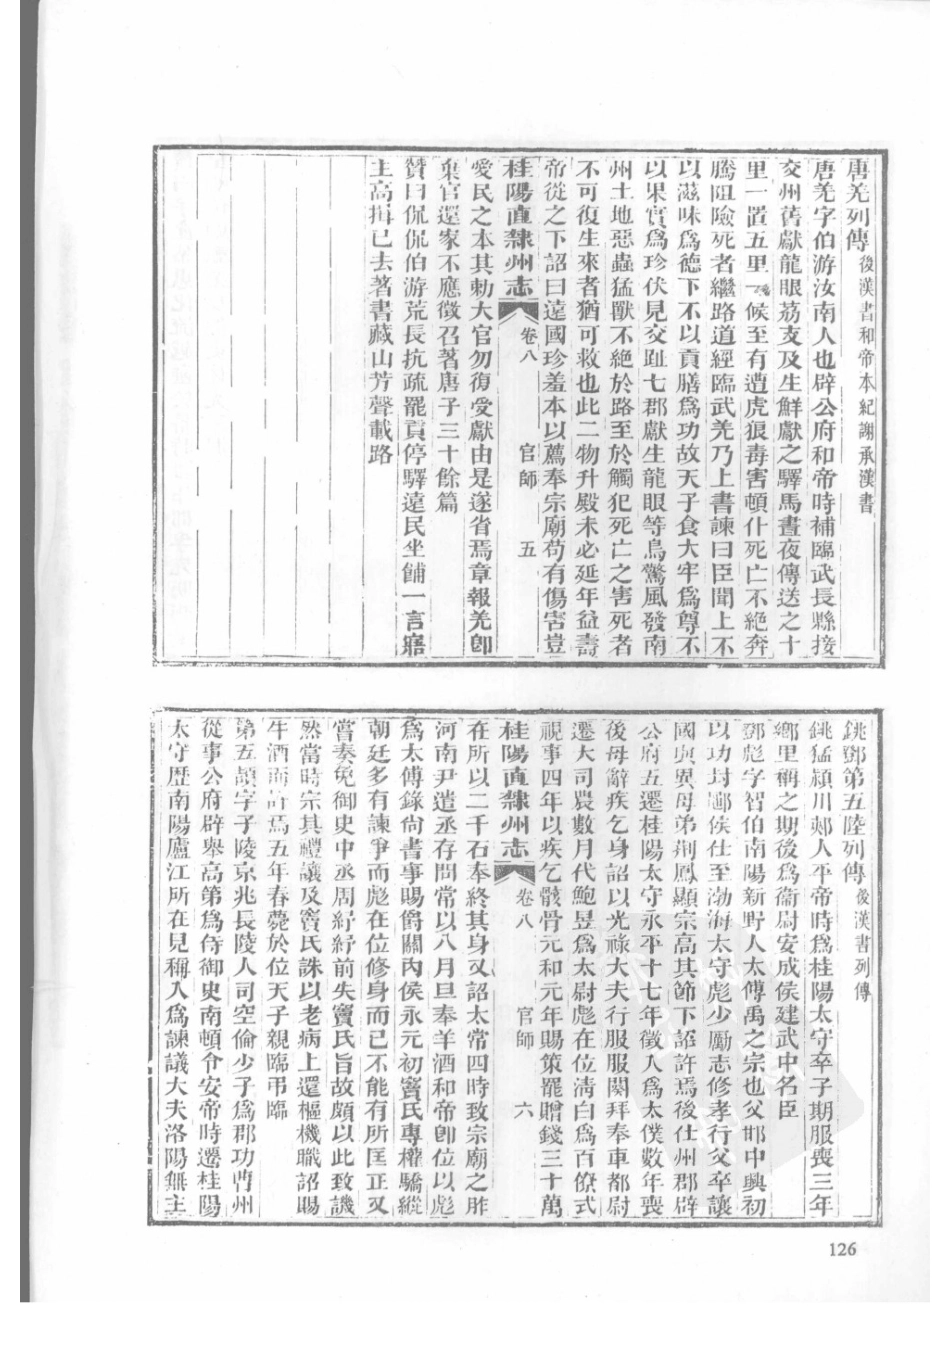 唐羌列傳 後漢書和帝本紀謝承漢書
唐羌字伯游汝南人也辟公府和帝時補臨武長縣接
交州舊獻龍眼荔支及生鮮獻之驛馬晝夜傳送之十
里一置五里一候至有遭虎狼毒害頓仆死亡不絕奔
騰阻險死者繼路道經臨武羌乃上書諫曰臣聞上不
以滋味爲德下不以貢膳爲功故天子食大牢爲尊不
以果實爲珍伏見交趾七郡獻生龍眼等鳥驚風發南
州土地惡蟲猛獸不絕於路至於觸犯死亡之害死者
不可復生來者猶可救也此二物升殿未必延年益壽
帝從之下詔曰遠國珍羞本以薦奉宗廟苟有傷害豈
桂陽直隸州志 卷八 官師 五
愛民之本其勅大官勿復受獻由是遂省焉章報羌卽
棄官還家不應徵召著唐子三十餘篇
贊曰侃侃伯游荒長抗疏罷貢停驛遠民坐餔一言寤
主高揖已去著書藏山芳聲載路
銚鄧第五陸列傳 後漢書列傳
銚猛潁川郟人平帝時爲桂陽太守卒子期服喪三年
鄉里稱之期後爲衞尉安成侯建武中名臣
鄧彪字智伯南陽新野人太傅禹之宗也父邯中興初
以功封鄳侯仕至渤海太守彪少勵志修孝行父卒讓
國與異母弟荆鳳顯宗高其節下詔許焉後仕州郡辟
公府五遷桂陽太守永平十七年徵入爲太僕數年喪
後母辭疾乞身詔以光祿大夫行服服闋拜奉車都尉
遷大司農數月代鮑昱爲太尉彪在位淸白爲百僚式
視事四年以疾乞骸骨元和元年賜策罷贈錢三十萬
桂陽直隸州志 卷八 官師 六
在所以二千石奉終其身又詔太常四時致宗廟之胙
河南尹遣丞存問常以八月旦奉羊酒和帝卽位以彪
爲太傅錄尙書事賜爵關內侯永元初竇氏專權驕縱
朝廷多有諫爭而彪在位修身而已不能有所匡正又
嘗奏免御史中丞周紆紆前失竇氏旨故頗以此致譏
然當時宗其禮讓及竇氏誅以老病上還樞機職詔賜
牛酒而許焉五年春薨於位天子親臨弔臨
第五頡字子陵京兆長陵人司空倫少子爲郡功曹州
從事公府辟舉高第爲侍御史南頓令安帝時遷桂陽
太守歷南陽廬江所在見稱入爲諫議大夫洛陽無主
126